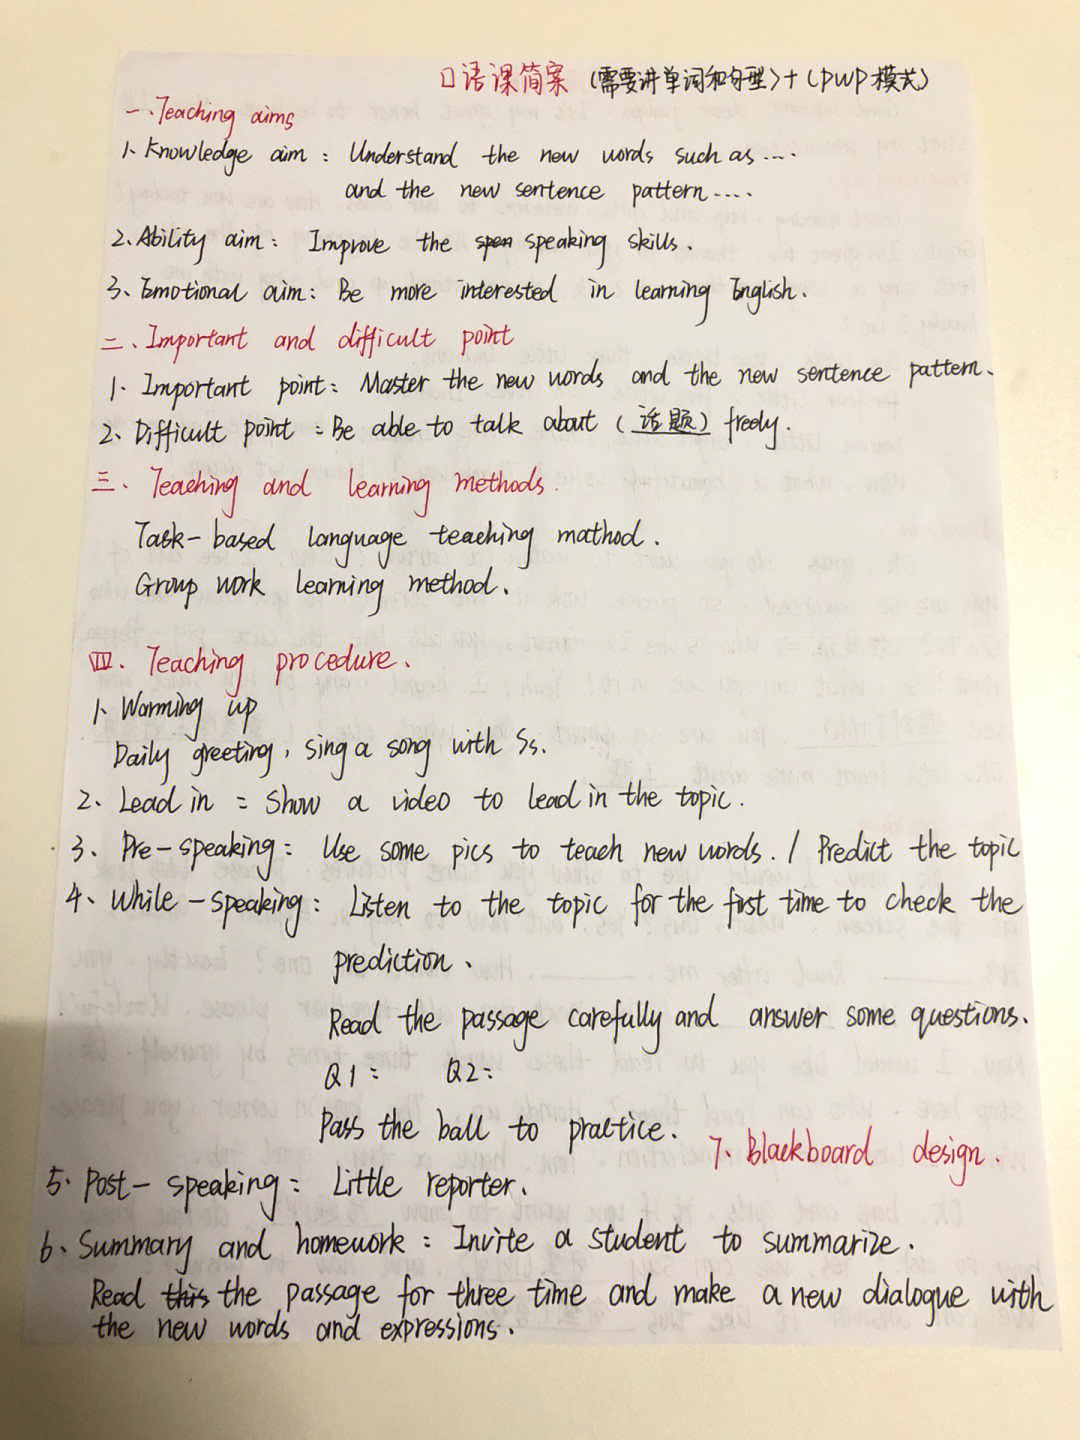 口语课简案 (需要讲单词和句型)+(PWP模式)
一、Teaching aims
1、Knowledge aim : Understand the new words such as ....
and the new sentence pattern ....
2、Ability aim : Improve the speaking skills.
3、Emotional aim : Be more interested in learning English.
二、Important and difficult point
1、Important point : Master the new words and the new sentence pattern.
2、Difficult point : Be able to talk about (话题) freely.
三、Teaching and learning methods.
Task-based language teaching mathod.
Group work learning method.
四、Teaching procedure.
1、Warming up
Daily greeting, sing a song with Ss.
2、Lead in : Show a video to lead in the topic.
3、Pre-speaking : Use some pics to teach new words. / Predict the topic
4、While-speaking : Listen to the topic for the first time to check the
prediction.
Read the passage carefully and answer some questions.
Q1: Q2:
Pass the ball to practice.
7、Blackboard design.
5、Post-speaking : Little reporter.
6、Summary and homework : Invite a student to summarize.
Read the passage for three time and make a new dialogue with
the new words and expressions.